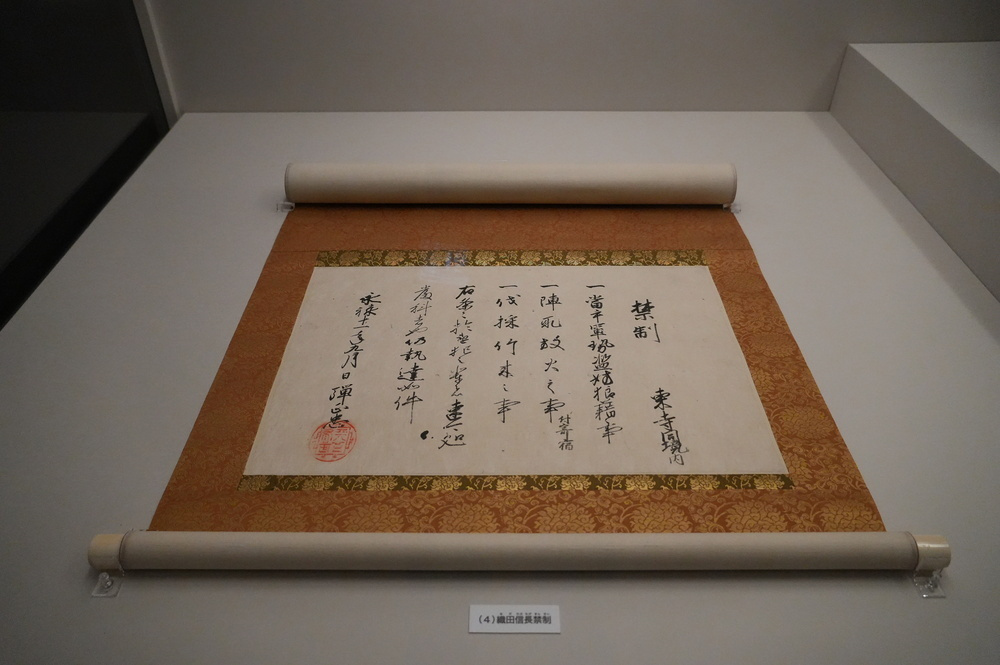 禁制 東寺同境内
一當手軍勢濫妨狼藉事
一陣取放火之事 付寄宿
一伐採竹木之事
右条々於違犯之輩者速可処
厳科者也仍執達如件
永禄十一年九月日 弾正忠
(4)織田信長禁制